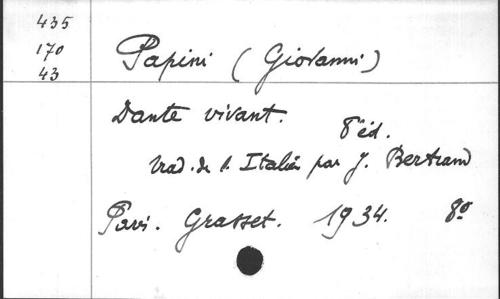 435
170
43
Papini (Giovanni)
Dante vivant.
8 éd.
trad. de l. Italien par J. Bertrand
Paris. Grasset. 1934. 8º